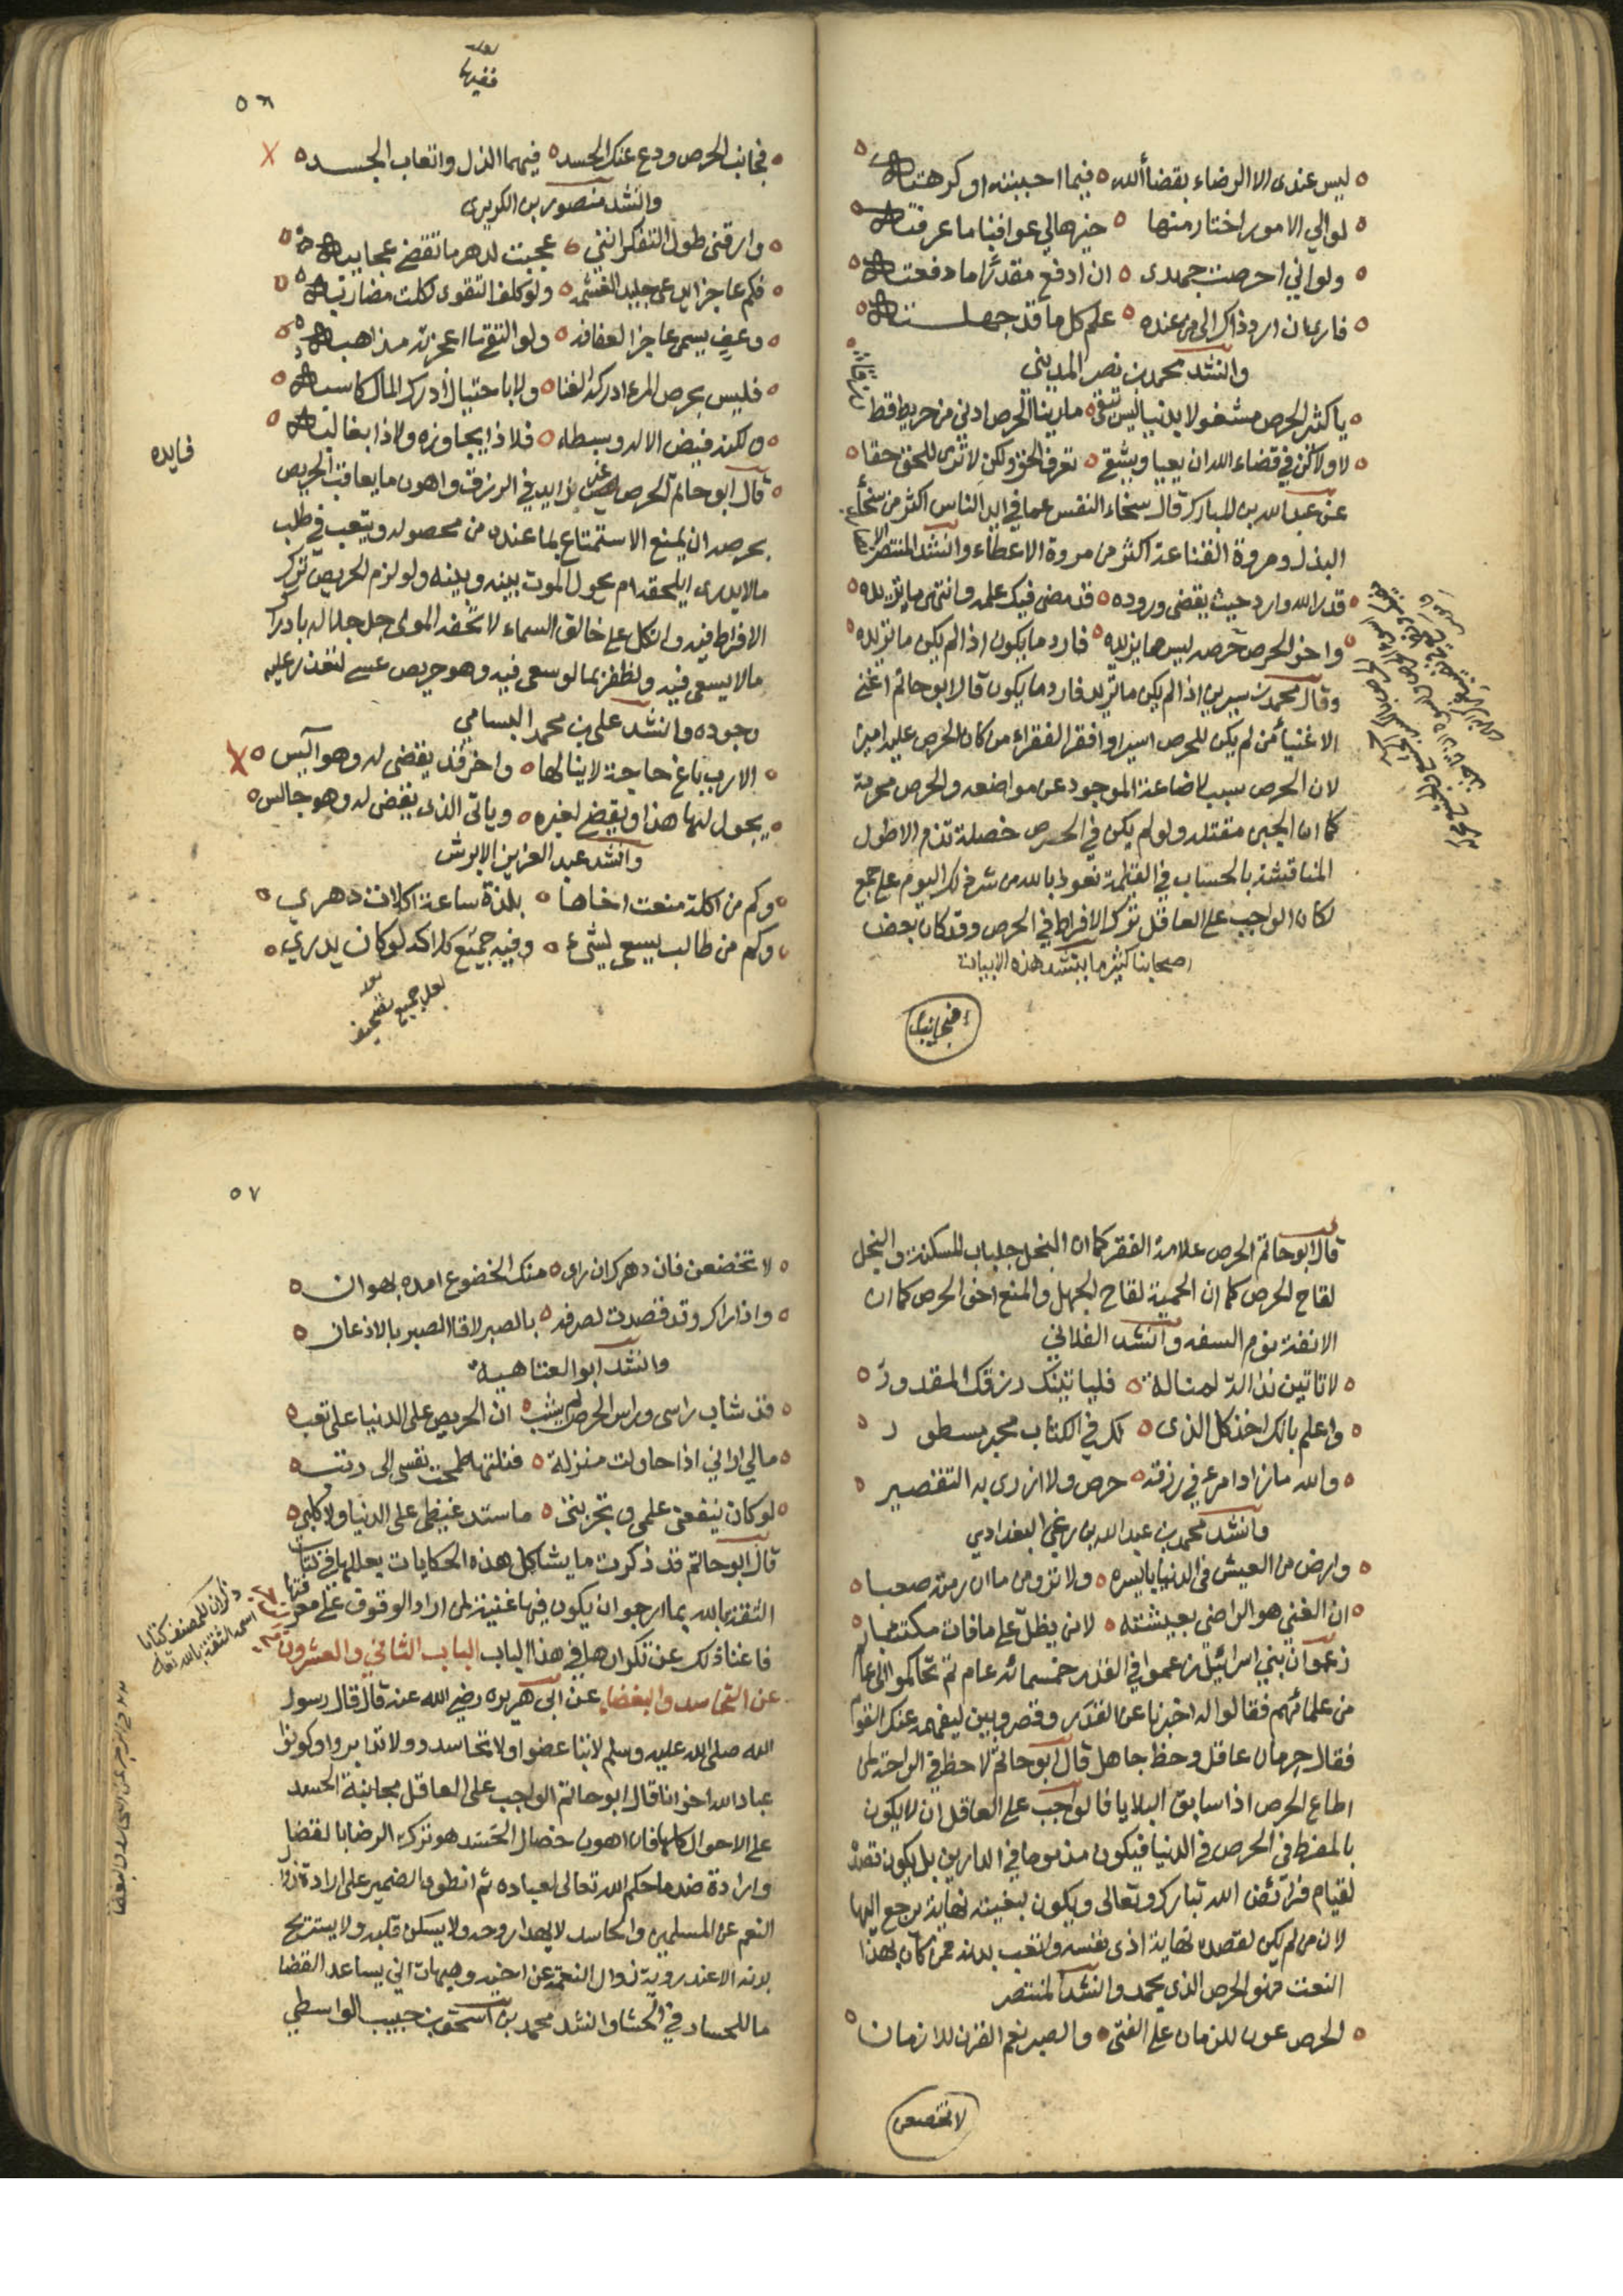 ليس عندى الا الرضاء بقضأ الله ٥ فيما احببته او كرهته
لو الي الامور اختار منها ٥ خيرها لي عواقبا ما عرفته
ولو اني احرصت جهدى ٥ ان ادفع مقدرا ما دفعته
فارى ان ارد ذاك الى من عنده ٥ علم كل ما قد جهلته
وانشد محمد بن نصر المديني
يا كثير الحرص مشغولا بدنيا ليس تبقى ٥ ما رينا الحرص ادنى من حريط قط
لا ولا كن في قضاء الله ان يعيا ويشقى ٥ تعرف الحق ولكن لا ترى للحق حقا
عن عبد الله بن المبارك قال سخاء النفس عما في ايد الناس اكثر من سخأ
البذل ومروة القناعة اكثر من مروة الاعطاء وانشد المنتصر
قدر الله وارد حيث يقضى وروده ٥ قد مضى فيك علمه وانتهى ما يريده
واخو الحرص حرصه ليس هما يزيده ٥ فارد ما يكون اذا لم يكن ما تريده
وقال محمد بن سيرين اذا لم يكن ما تريد فارد ما يكون قال ابو حاتم اغنى
الاغنيأ من لم يكن للحرص اسيرا وافقر الفقراء من كان الحرص عليه اميرا
لان الحرص سبب لاضاعة الموجود عن مواضعه والحرص محرمة
كما ان الجبن مقتله ولو لم يكن في الحرص خصلة تذم الا طول
المناقشة بالحساب في القيمة نعوذ بالله من شر ذلك اليوم على جمع
لكان الواجب على العاقل ترك الافراط في الحرص وقد كان بعض
اصحابنا كثير ما ينشد هذه الابيات
فجانب
٥٦
فجانب الحرص ودع عنك الحسد ٥ فيهما الذل واتعاب الجسد
وانشد منصور بن الكريزى
وارقنى طول التفكر انني ٥ عجبت لدهر ما تقضى عجايبه
فكم عاجز يدعى جليد الغشمه ٥ ولو كلف التقوى لكلت مضاربه
وعف يسمى عاجزا لعفافه ٥ ولو لا التقى ما اعجزته مذاهبه
فليس بحرص المرء ادركه الغنا ٥ ولا باحتيال أدرك المال كاسبه
ولكنه فيض الاله وبسطه ٥ فلا ذا يجاوزه ولا ذا يغالبه
فايده
قال ابو حاتم الحرص غير زايد في الرزق واهون ما يعاقب الحريص
بحرصه ان يمنع الاستمتاع بما عنده من محصوله ويتعب في طلب
ما لا يدرى ايلحقه ام يحول الموت بينه وبينه ولو لزم الحريص ترك
الافراط فيه واتكل على خالق السماء لا تحفه المولى جل جلاله بادراك
ما لا يسعى فيه ولظفر بما لو سعى فيه وهو حريص عسى لتعذر عليه
وجوده وانشد على بن محمد البسامي
الا رب باغ حاجة لا ينالها ٥ واخر قد يقضى له وهو آيس
يحول لها هذا ويقضى لغيره ٥ وياتى الذى يقضى له وهو جالس
وانشد عبد العزيز الابرش
وكم من اكلة منعت اخاها ٥ بلذة ساعة اكلات دهرى
وكم من طالب يسعى لشئ ٥ وفيه جميع كلاك لو كان يدري
لعل جميع تصحيف
قال ابو حاتم الحرص علامة الفقر كما ان البخل جلباب المسكنة والبخل
لقاح الحرص كما ان الحمية لقاح الجهل والمنع اخو الحرص كما ان
الانفة توم السفه وانشد الفلاني
لا تاتين نذالة لمنالة ٥ فلياتينك رزقك المقدور
واعلم بانك اخذ كل الذى ٥ لك في الكتاب محبر مسطور
والله ما زاد امرء في رزقه ٥ حرص ولا ازرى به التقصير
وانشد محمد بن عبد الله بن زغي البغدادي
وارض من العيش فى الدنيا بايسره ٥ ولا ترومن ما ان رمته صعبا
ان الغني هو الراضى بعيشته ٥ لا من يظل على ما فات مكتئبا
زعموا ان بني اسرائيل تعموا في القدر خمسمائه عام ثم تحاكموا الى عالم
من علمائهم فقالوا له اخبرنا عن القدر وقصر وبين ليفهمه عنك القوام
فقال حرمان عاقل وحظ جاهل قال ابو حاتم لا حظ في الراحة لمن
اطاع الحرص اذا سابق البلايا فالواجب على العاقل ان لا يكون
بالمفرط فى الحرص في الدنيا فيكون مذموما في الدارين بل يكون قصده
لقيام فرائض الله تبارك وتعالى ويكون لبغيته نهاية يرجع اليها
لان من لم يكن لقصده نهاية اذى نفسه واتعب بدنه فمن كان بهذا
النعت فهو الحرص الذي يحمد وانشد المنتصر
الحرص عون للزمان على الفتى ٥ والصبر نعم القرن للازمان
لا تخضعن
٥٧
لا تخضعن فان دهرك ان راى ٥ منك الخضوع امده بهوان
واذا راك وقد قصدت لصرفه ٥ بالصبر لاقا الصبر بالاذعان
وانشد ابو العتاهيه
قد شاب راسى وراس الحرص لم يشب ٥ ان الحريص على الدنيا على تعب
ما لي اراني اذا حاولت منزلة ٥ فنلتها طمحت نفسى الى رتب
لو كان ينفعنى علمى وتجربتى ٥ ما ستد غيظى على الدنيا ولا كلبى
قال ابو حاتم قد ذكرت ما يشاكل هذه الحكايات بعللها في كتاب
الثقة بالله بما ارجو ان يكون فيها غنية لمن اراد الوقوف على معرفتها
ذكر ان للمصنف كتابا
اسمه الثقة بالله تعالى
فاغنا ذلك عن تكرارها في هذا الباب الباب الثاني والعشرون
عن التحاسد والبغضا عن ابى هريره رضي الله عنه قال قال رسول
الله صلى الله عليه وسلم لا تباغضوا ولا تحاسدوا ولا تدابروا وكونوا
عباد الله اخوانا قال ابو حاتم الواجب على العاقل مجانبة الحسد
على الاحوال كلها فان اهون خصال الحسد هو ترك الرضا بالقضا
وارادة ضد ما حكم الله تعالى لعباده ثم انطوى الضمير على ارادة زوال
النعم عن المسلمين والحاسد لا يهدا روحه ولا يسكن قلبه ولا يستريح
بدنه الا عند روية زوال النعمة عن اخيه وهيهات اني يساعد القضا
ما للحساد في الحشا وانشد محمد بن اسحق بن حبيب الواسطي